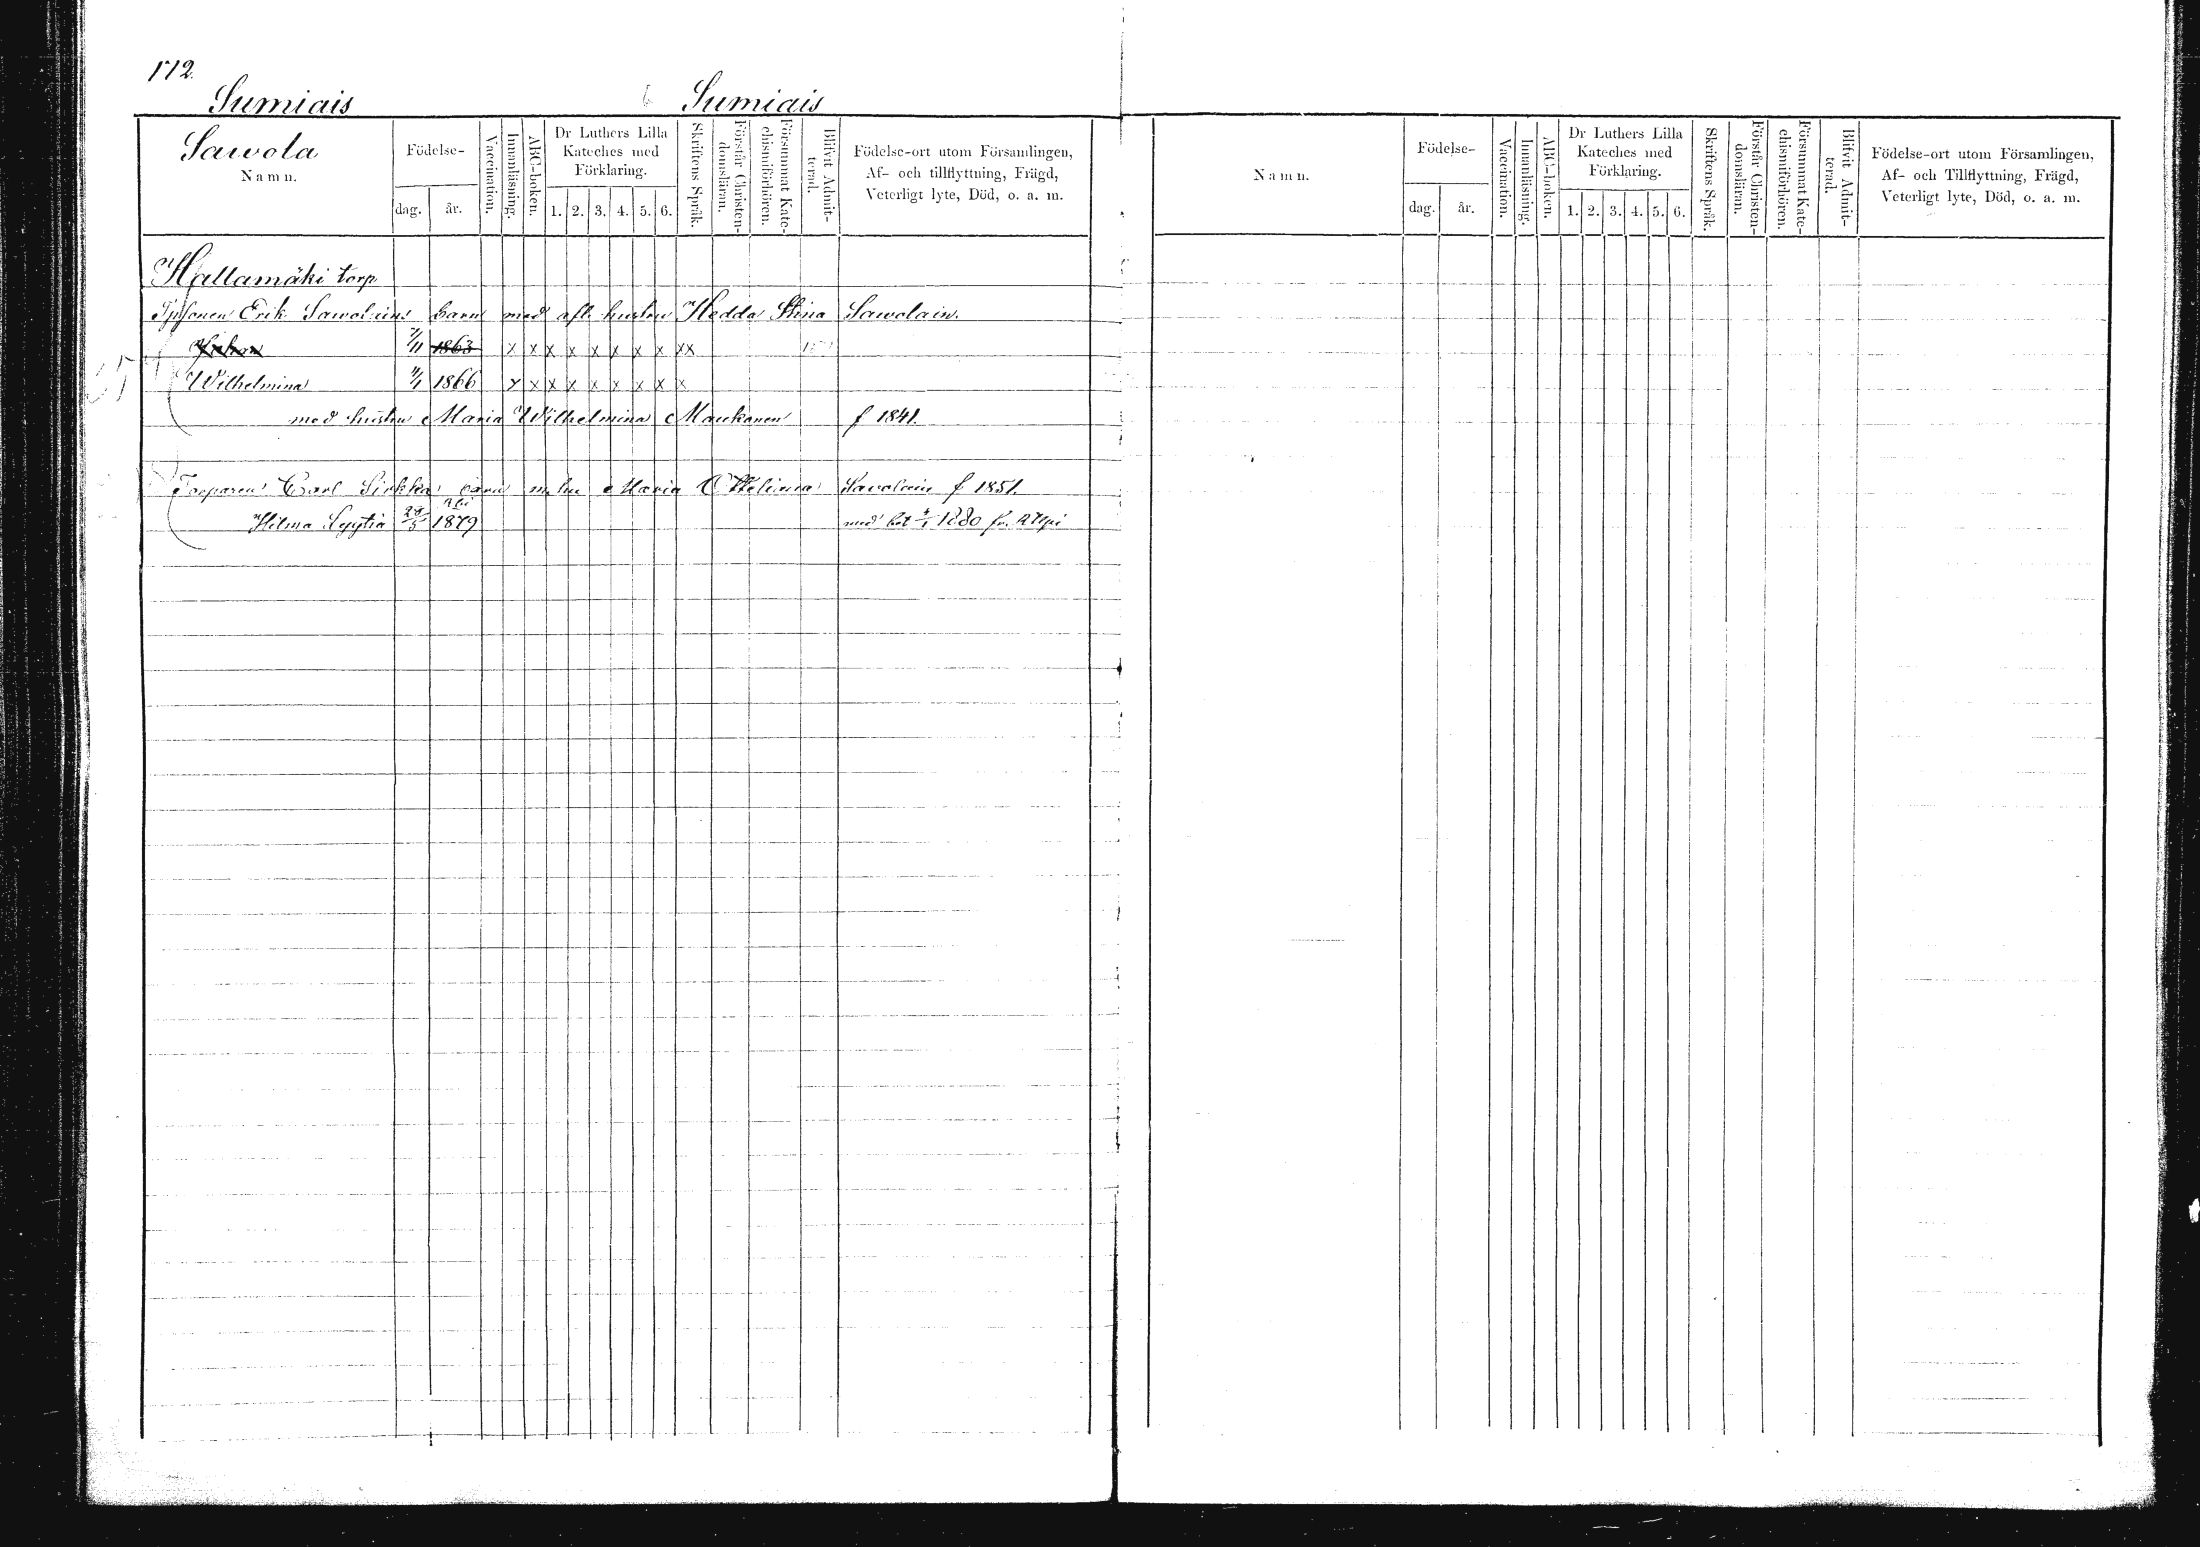 172.
Sumiais Sumiais
Sawola
Namn.
Födelse-
dag. år.
Vaccination.
Innanläsning.
ABC-boken.
Dr Luthers Lilla
Kateches med
Förklaring.
1. 2. 3. 4. 5. 6.
Skriftens Språk.
Förstår Christen-
domsläran.
Försummat Kate-
chismiförhören.
Blifvit Admit-
terad.
Födelse-ort utom Församlingen,
Af- och tillflyttning, Frägd,
Veterligt lyte, Död, o. a. m.
Hallamäki torp
Erik Sawolains barn med afl. hustru Hedda Stina Sawolain.
7/11 1863 x x x x x x x x xx
Wilhelmina 11/1 1866 x x x x x x x x x
med hustru Maria Wilhelmina Maukonen f 1841.
Torparen Carl Sirkka barn m. hu Maria Ottelina Savolain f 1851.
Hilma Lyytia 28/5 1879 med bet 4/1 1880 fr.
Namn.
Födelse-
dag. år.
Vaccination.
Innanläsning.
ABC-boken.
Dr Luthers Lilla
Kateches med
Förklaring.
1. 2. 3. 4. 5. 6.
Skriftens Språk.
Förstår Christen-
domsläran.
Försummat Kate-
chismiförhören.
Blifvit Admit-
terad.
Födelse-ort utom Församlingen,
Af- och Tillflyttning, Frägd,
Veterligt lyte, Död, o. a. m.